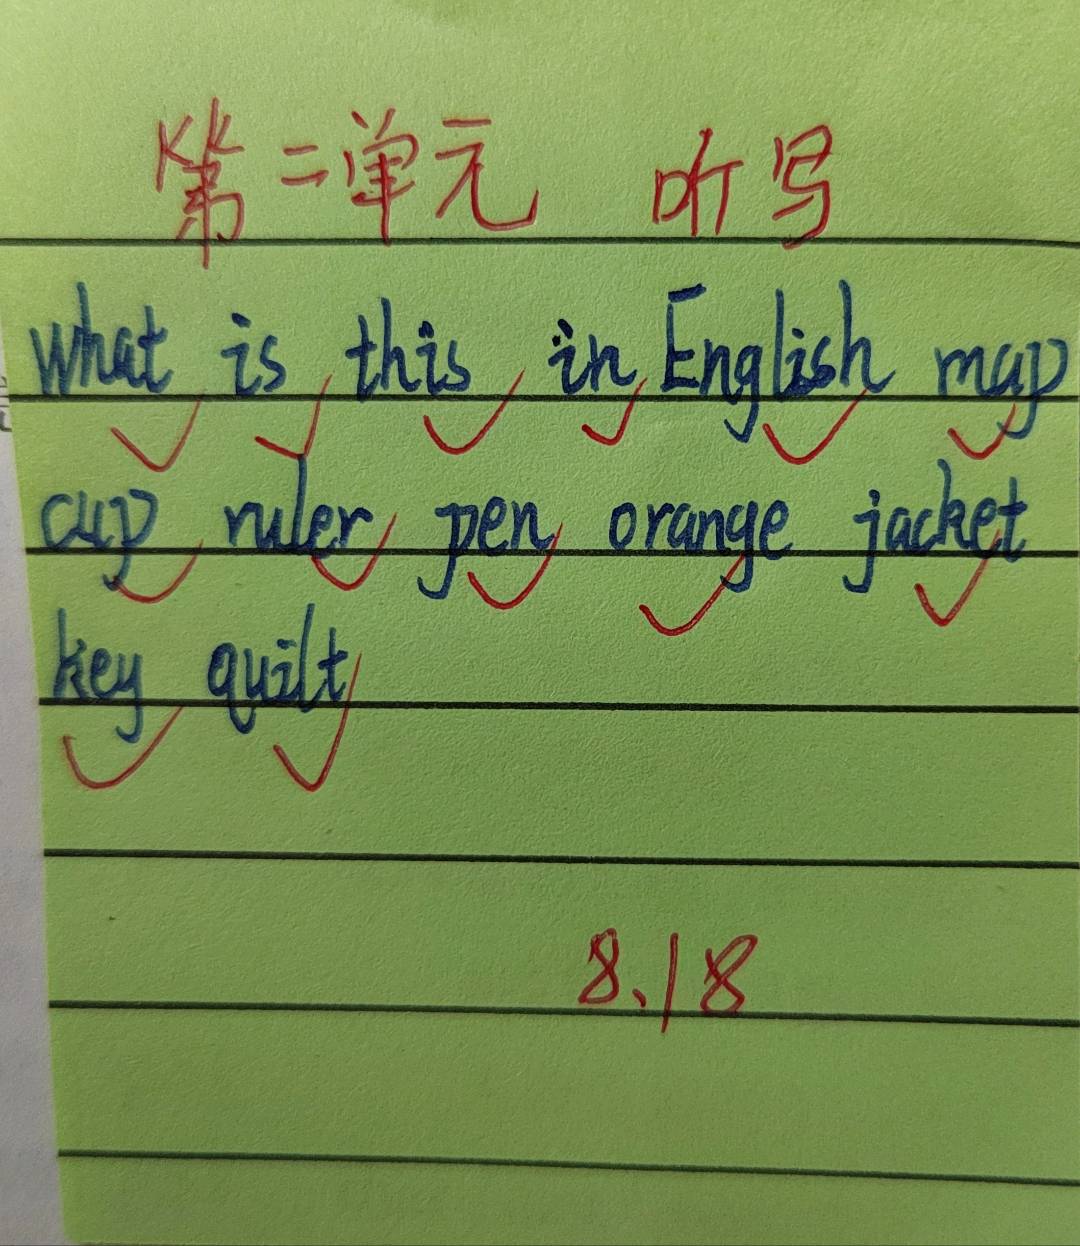 第二单元 听写
What is this in English map
cup ruler pen orange jacket
key quilt
8.18